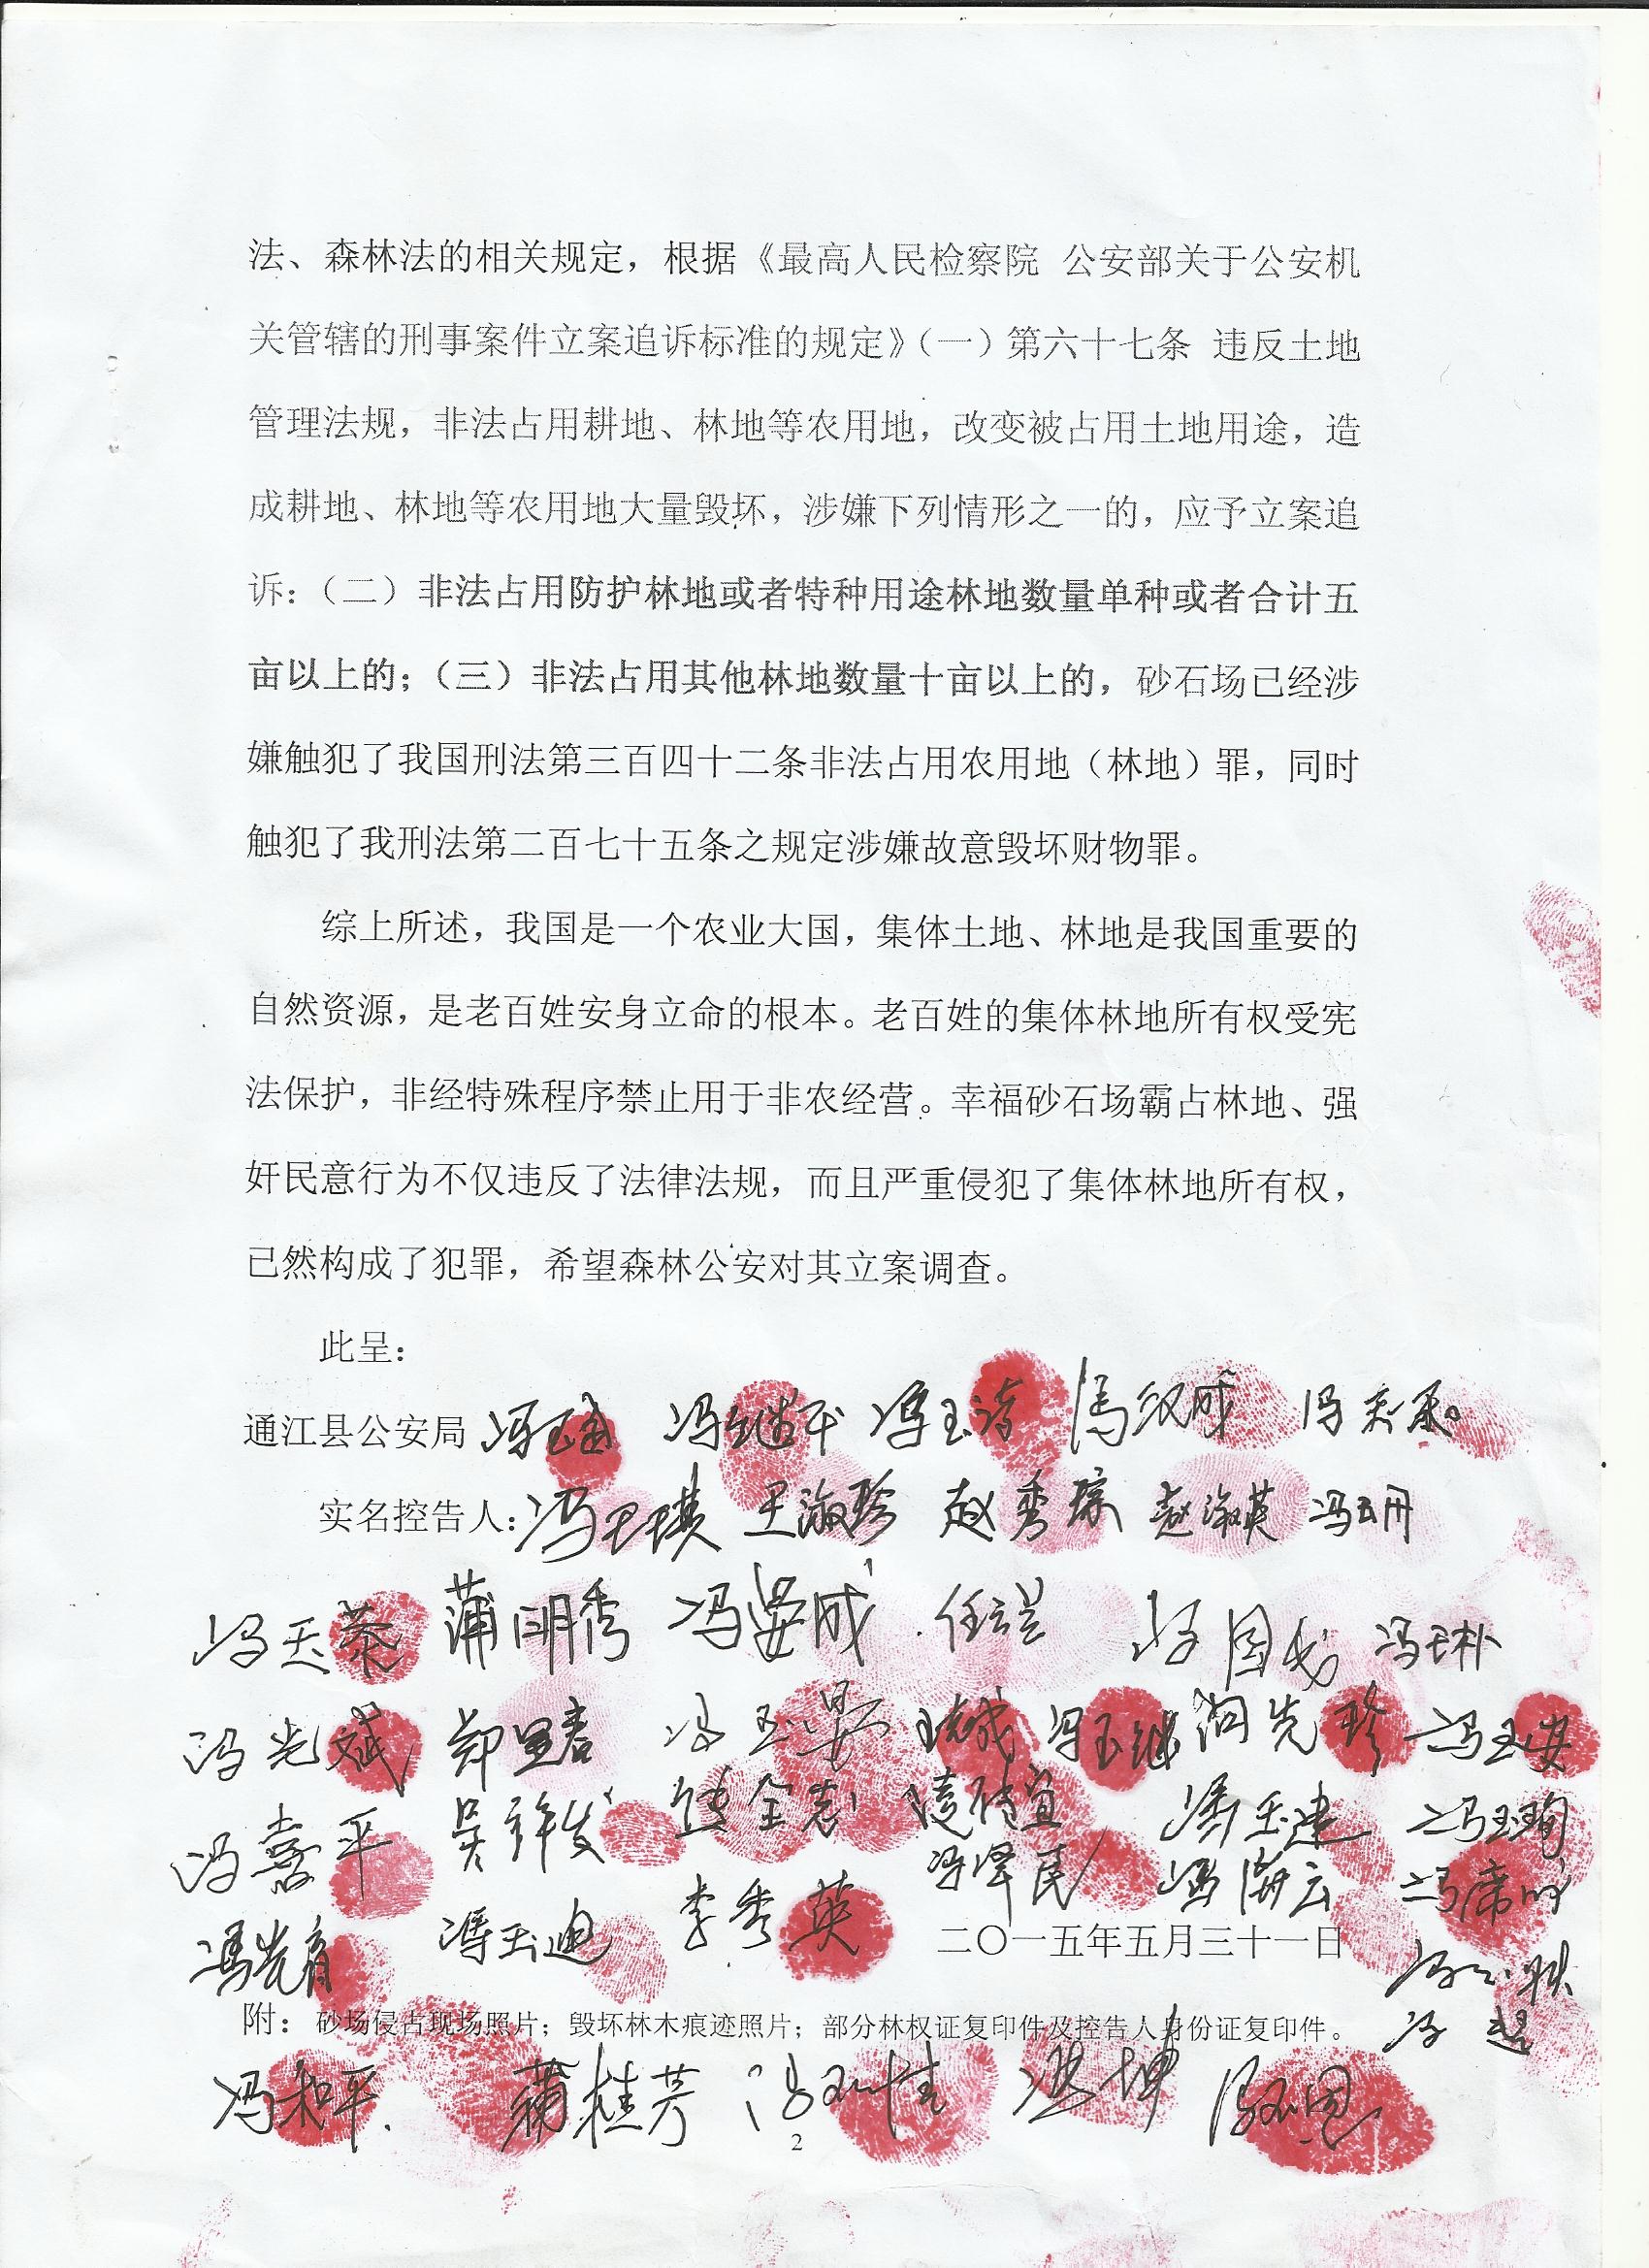 法、森林法的相关规定，根据《最高人民检察院 公安部关于公安机
关管辖的刑事案件立案追诉标准的规定》（一）第六十七条 违反土地
管理法规，非法占用耕地、林地等农用地，改变被占用土地用途，造
成耕地、林地等农用地大量毁坏，涉嫌下列情形之一的，应予立案追
诉：（二）非法占用防护林地或者特种用途林地数量单种或者合计五
亩以上的；（三）非法占用其他林地数量十亩以上的，砂石场已经涉
嫌触犯了我国刑法第三百四十二条非法占用农用地（林地）罪，同时
触犯了我刑法第二百七十五条之规定涉嫌故意毁坏财物罪。
综上所述，我国是一个农业大国，集体土地、林地是我国重要的
自然资源，是老百姓安身立命的根本。老百姓的集体林地所有权受宪
法保护，非经特殊程序禁止用于非农经营。幸福砂石场霸占林地、强
奸民意行为不仅违反了法律法规，而且严重侵犯了集体林地所有权，
已然构成了犯罪，希望森林公安对其立案调查。
此呈：
通江县公安局 冯继平 冯玉涛 冯汉成
实名控告人：冯玉琪 王淑珍 赵秀琼 赵淑英 冯玉册
冯天荣 蒲明秀 冯晏成 任云兰 冯国成 冯玉朴
冯光斌 郑显春 冯玉昊 冯玉继 闫先珍 冯玉安
冯喜平 吴祥发 冯玉建 冯玉珣
冯泽民 冯开云 冯席成
冯光育 冯玉迪 李秀英 二〇一五年五月三十一日
冯超
附：砂场侵占现场照片；毁坏林木痕迹照片；部分林权证复印件及控告人身份证复印件。
冯和平 蒲桂芳 冯坤 冯玉恩
2